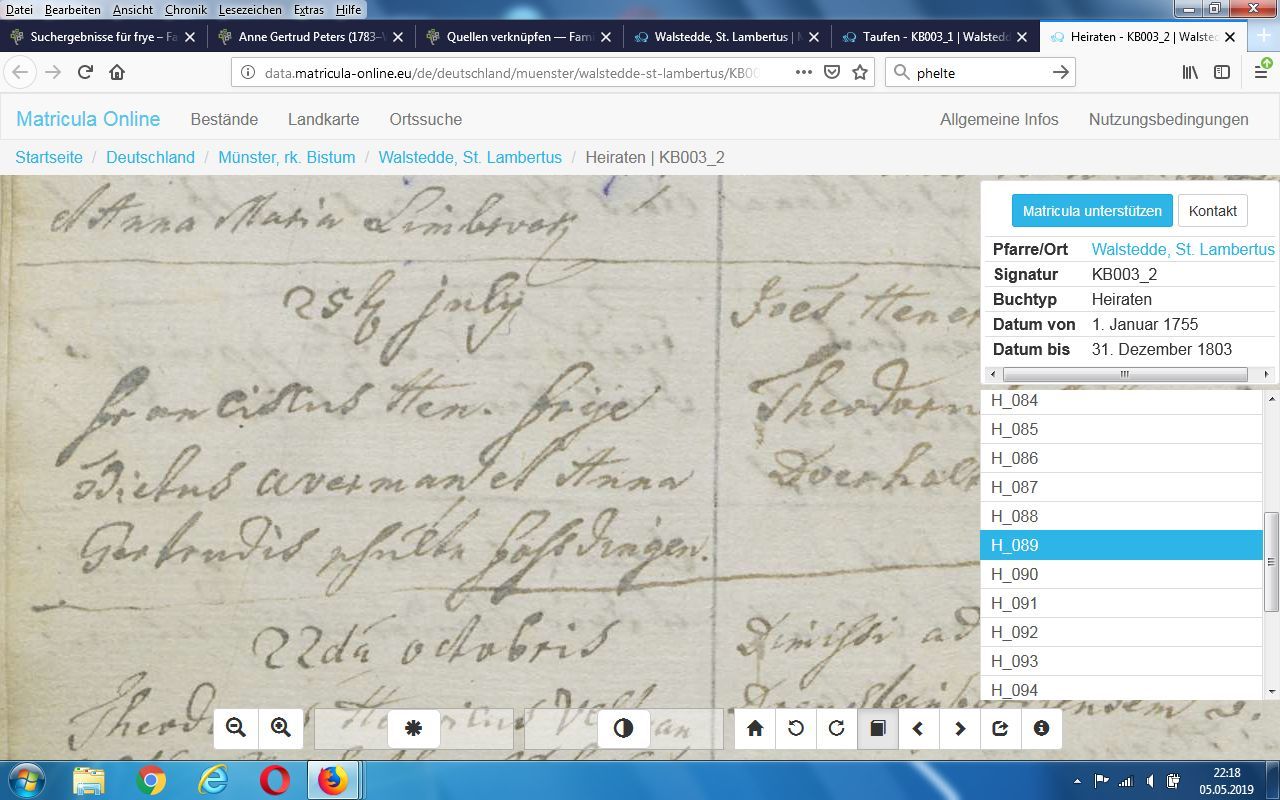 Datei Bearbeiten Ansicht Chronik Lesezeichen Extras Hilfe
Suchergebnisse für frye – Fa
Anne Gertrud Peters (1783–
Quellen verknüpfen — Fami
Walstedde, St. Lambertus | M
Taufen - KB003_1 | Walstedd
Heiraten - KB003_2 | Walsted
data.matricula-online.eu/de/deutschland/muenster/walstedde-st-lambertus/KB00
phelte
Matricula Online Bestände Landkarte Ortssuche Allgemeine Infos Nutzungsbedingungen
Startseite / Deutschland / Münster, rk. Bistum / Walstedde, St. Lambertus / Heiraten | KB003_2
Anna Maria
july
Franciscus Hen. Frije
Dictus Averman et Anna
Gertrudis
22da octobris
Joes Hener
Theodorn
Dimissi ad
Matricula unterstützen Kontakt
Pfarre/Ort Walstedde, St. Lambertus
Signatur KB003_2
Buchtyp Heiraten
Datum von 1. Januar 1755
Datum bis 31. Dezember 1803
H_084
H_085
H_086
H_087
H_088
H_089
H_090
H_091
H_092
H_093
H_094
22:18
05.05.2019